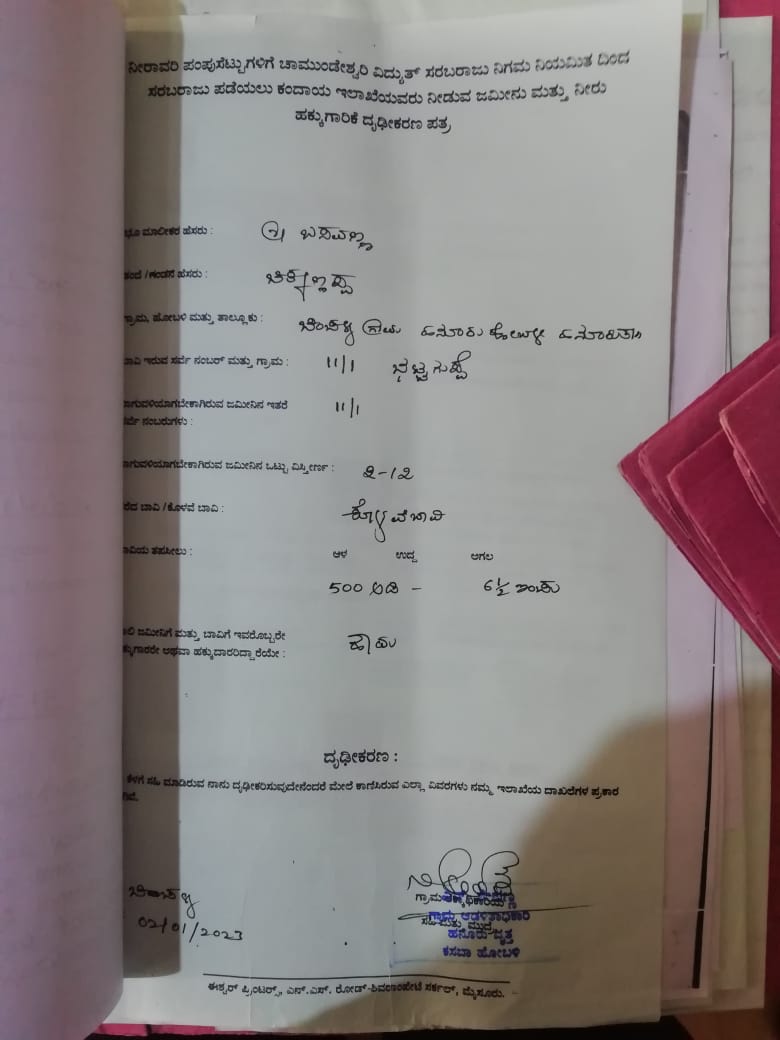 ನೀರಾವರಿ ಪಂಪುಸೆಟ್ಟುಗಳಿಗೆ ಚಾಮುಂಡೇಶ್ವರಿ ವಿದ್ಯುತ್ ಸರಬರಾಜು ನಿಗಮ ನಿಯಮಿತ ದಿಂದ
ಸರಬರಾಜು ಪಡೆಯಲು ಕಂದಾಯ ಇಲಾಖೆಯವರು ನೀಡುವ ಜಮೀನು ಮತ್ತು ನೀರು
ಹಕ್ಕುಗಾರಿಕೆ ದೃಢೀಕರಣ ಪತ್ರ
ಭೂ ಮಾಲೀಕರ ಹೆಸರು : ಶ್ರೀ ಬಸವಣ್ಣ
ತಂದೆ / ಗಂಡನ ಹೆಸರು :
ಗ್ರಾಮ, ಹೋಬಳಿ ಮತ್ತು ತಾಲ್ಲೂಕು : ಗ್ರಾಮ ಹನೂರು ಹೋಬಳಿ
ಬಾವಿ ಇರುವ ಸರ್ವೆ ನಂಬರ್ ಮತ್ತು ಗ್ರಾಮ : 11/1
ಸಾಗುವಳಿಯಾಗಬೇಕಾಗಿರುವ ಜಮೀನಿನ ಇತರೆ 11/1
ಸರ್ವೆ ನಂಬರುಗಳು :
ಸಾಗುವಳಿಯಾಗಬೇಕಾಗಿರುವ ಜಮೀನಿನ ಒಟ್ಟು ವಿಸ್ತೀರ್ಣ : 2-12
ತೆರೆದ ಬಾವಿ / ಕೊಳವೆ ಬಾವಿ : ಕೊಳವೆ ಬಾವಿ
ಬಾವಿಯ ತಪಸೀಲು : ಆಳ ಉದ್ದ ಅಗಲ
500 ಅಡಿ - 6½ ಇಂಚು
ಜಮೀನಿಗೆ ಮತ್ತು ಬಾವಿಗೆ ಇವರೊಬ್ಬರೇ ಹೌದು
ಹಕ್ಕುಗಾರರೇ ಅಥವಾ ಹಕ್ಕುದಾರರಿದ್ದಾರೆಯೇ :
ದೃಢೀಕರಣ :
ಕೆಳಗೆ ಸಹಿ ಮಾಡಿರುವ ನಾನು ದೃಢೀಕರಿಸುವುದೇನೆಂದರೆ ಮೇಲೆ ಕಾಣಿಸಿರುವ ಎಲ್ಲಾ ವಿವರಗಳು ನಮ್ಮ ಇಲಾಖೆಯ ದಾಖಲೆಗಳ ಪ್ರಕಾರ
02/01/2023
ಗ್ರಾಮ ಆಡಳಿತಾಧಿಕಾರಿ
ಸಹಿ ಮತ್ತು ಮುದ್ರೆ
ಹನೂರು ವೃತ್ತ
ಕಸಬಾ ಹೋಬಳಿ
ಈಶ್ವರ್ ಪ್ರಿಂಟರ್ಸ್, ಎನ್.ಎಸ್. ರೋಡ್-ಶಿವರಾಂಪೇಟೆ ಸರ್ಕಲ್, ಮೈಸೂರು.